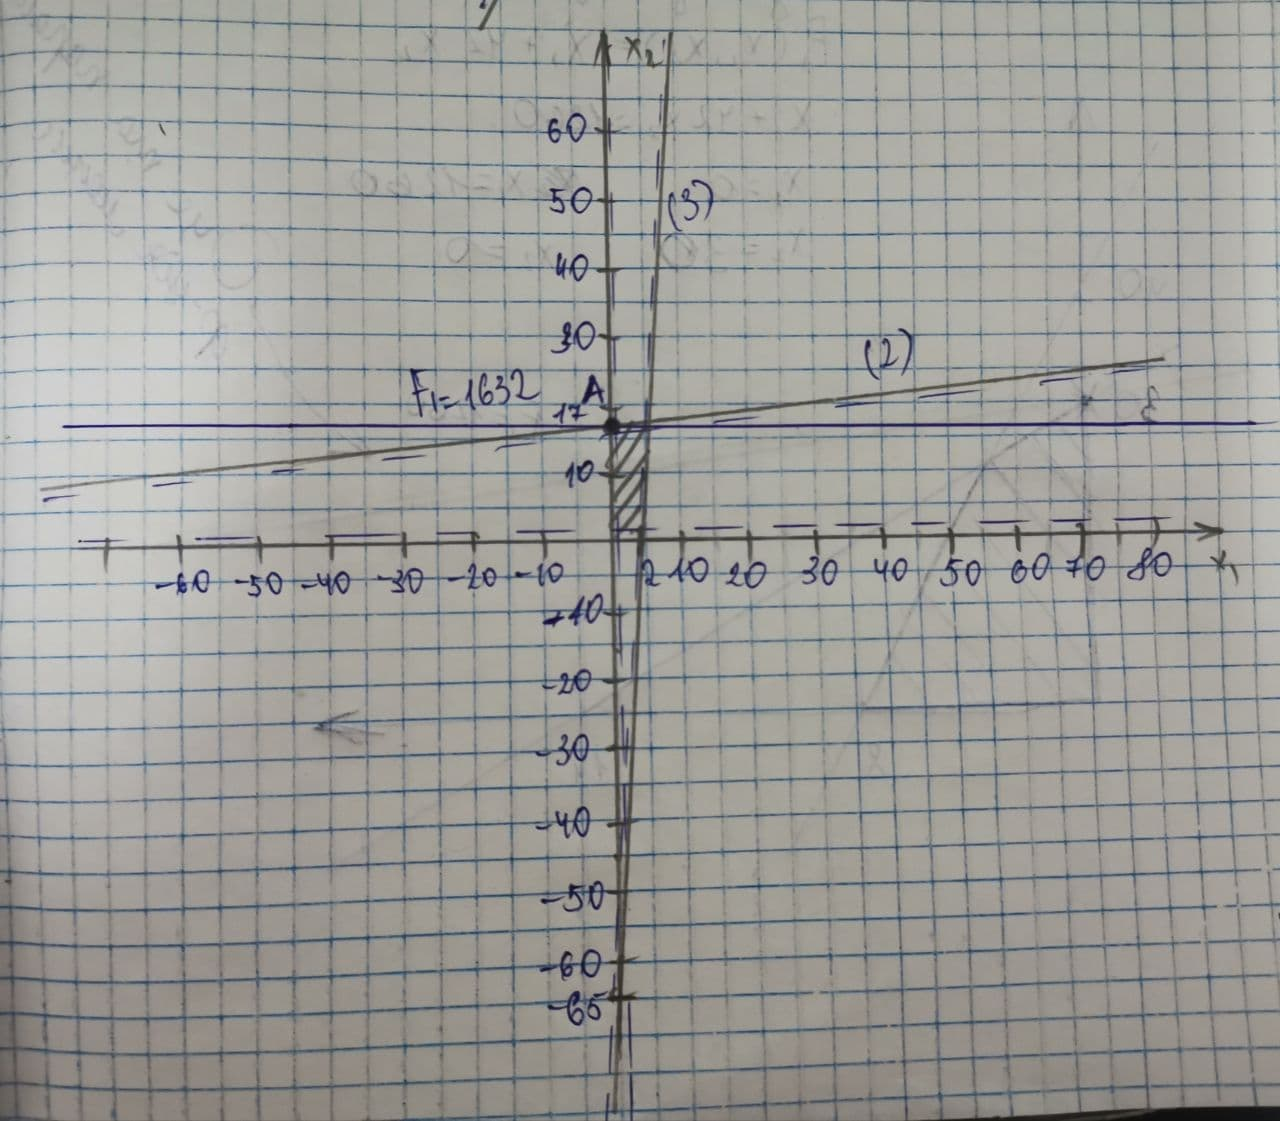 x₂
60
50
(3)
40
30
(2)
F₁=1632
A
17
ε
10
-60 -50 -40 -30 -20 -10 2 10 20 30 40 50 60 70 80 x₁
-10
-20
-30
-40
-50
-60
-65